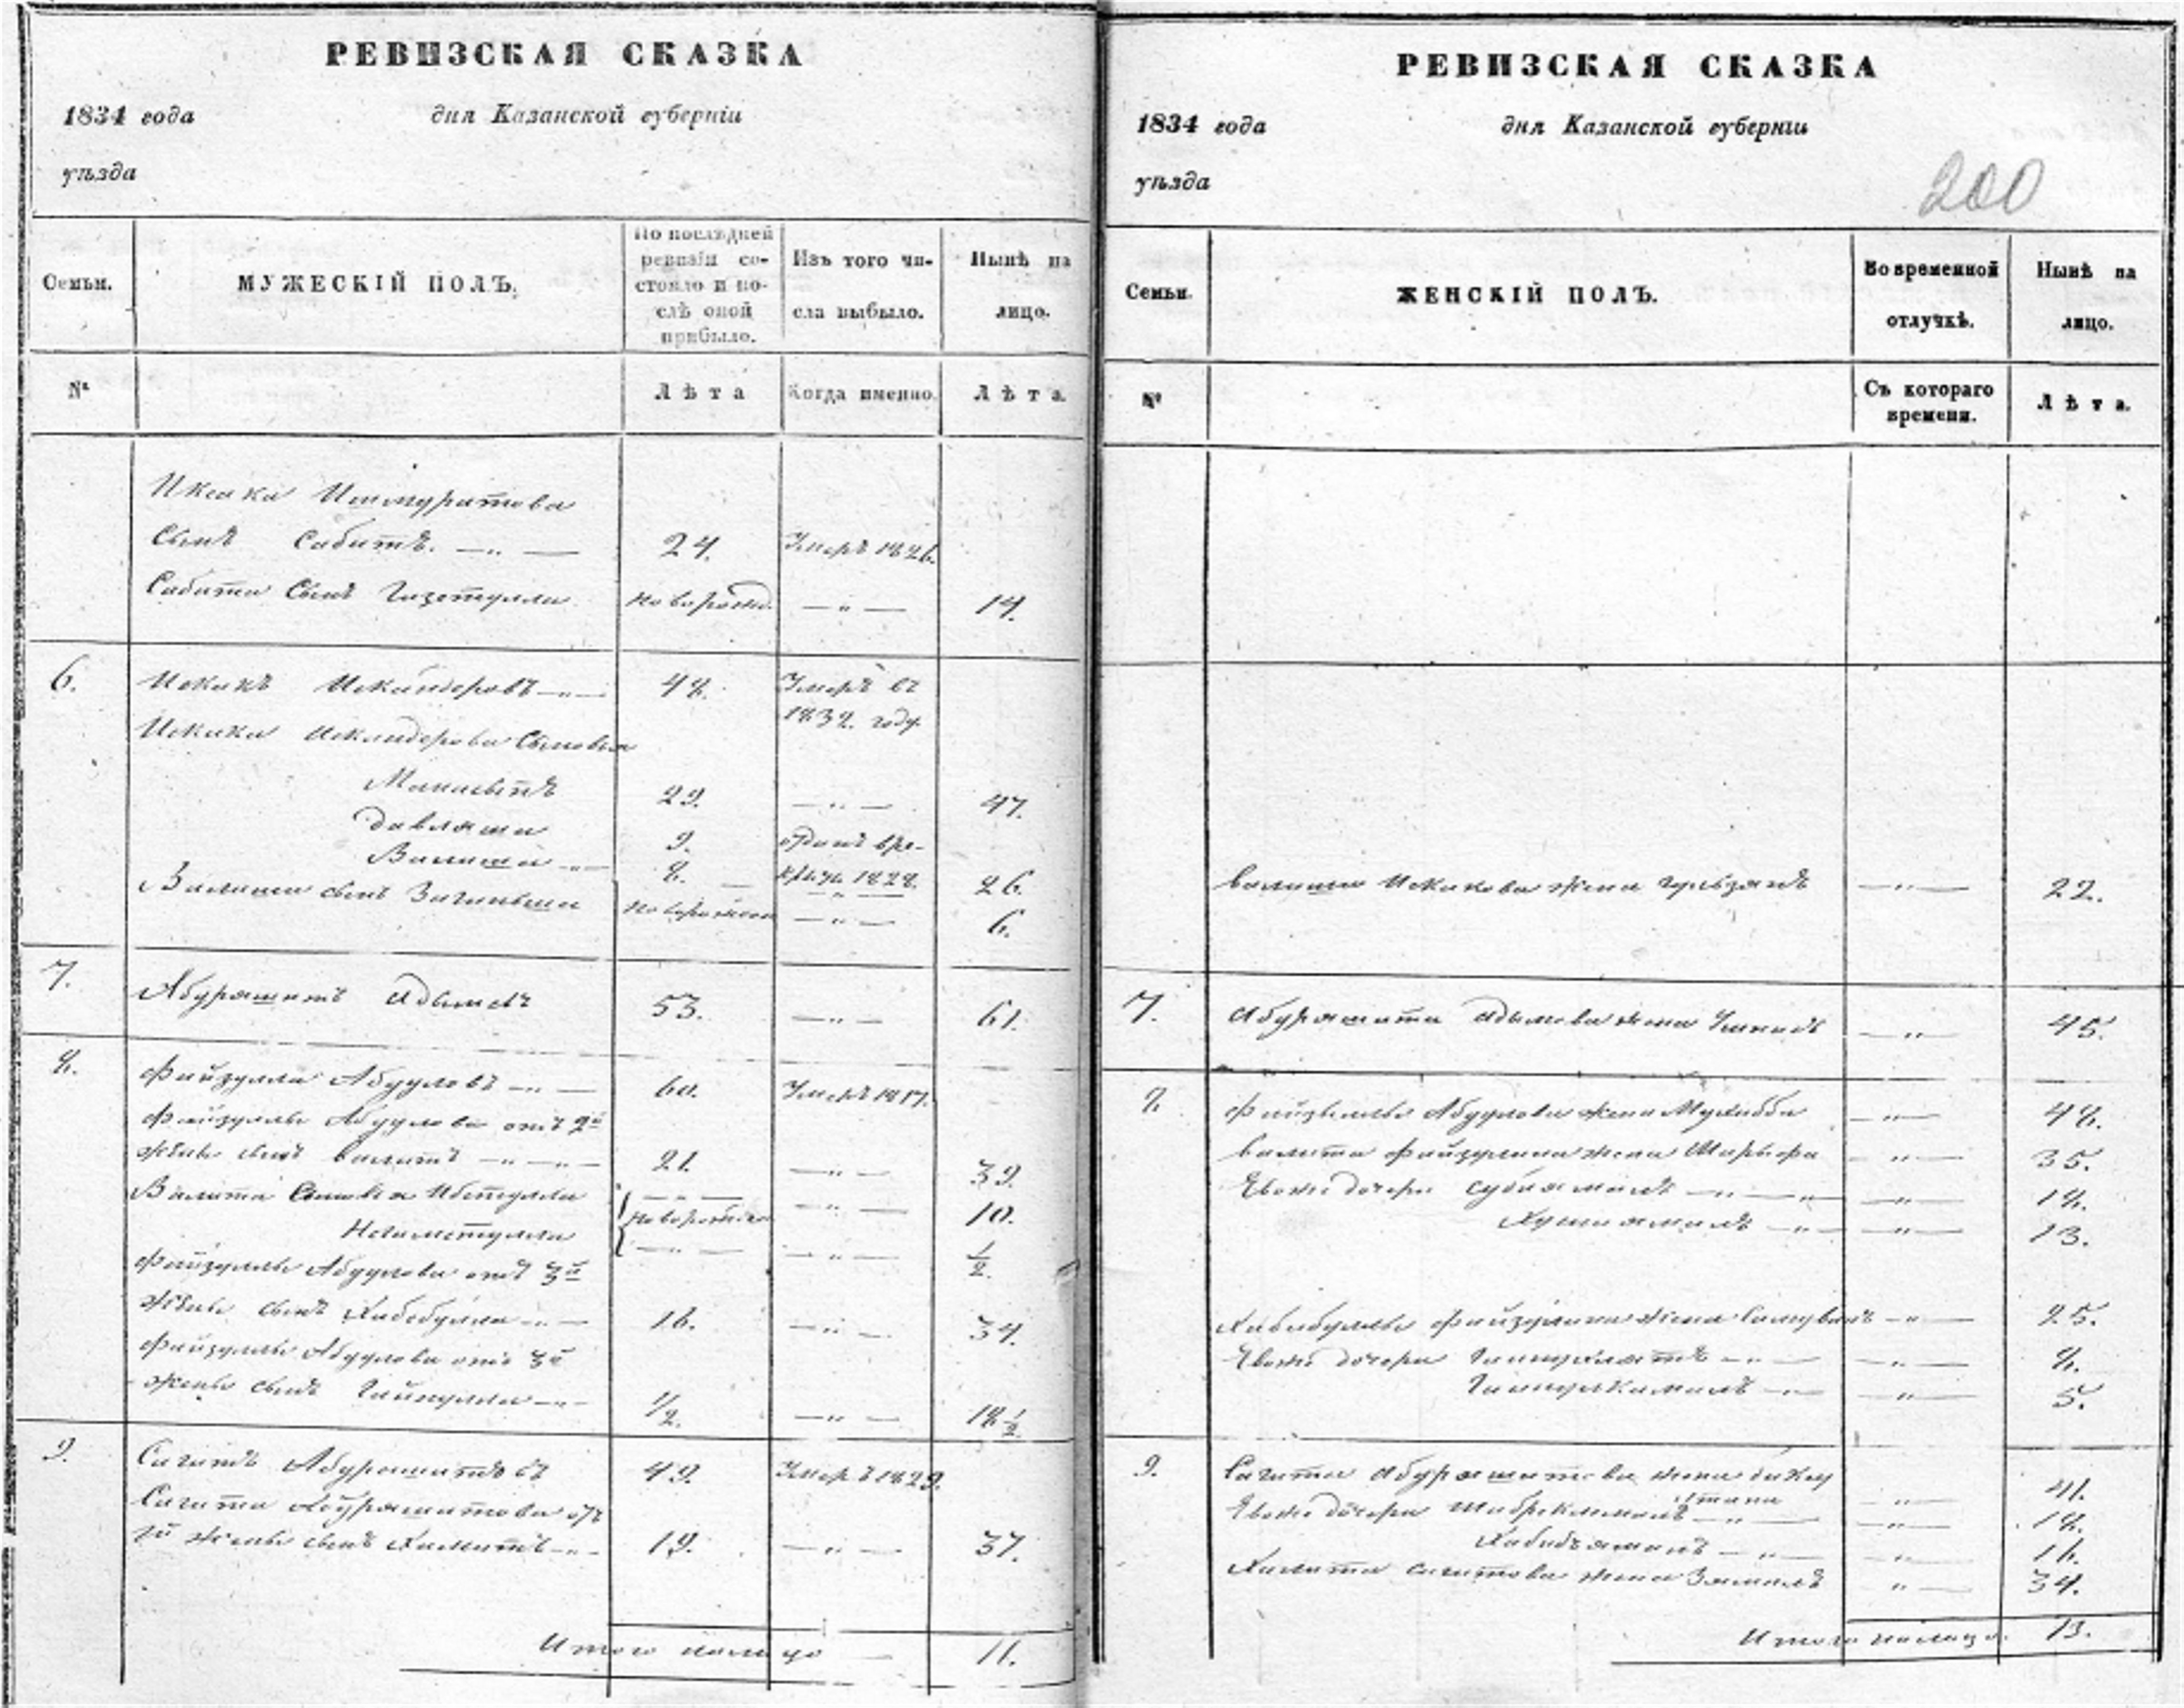 РЕВИЗСКАЯ СКАЗКА
1834 года дня Казанской губерніи
уѣзда
Семьи. МУЖЕСКІЙ ПОЛЪ. По послѣдней ревизіи состояло и послѣ оной прибыло. Изъ того числа выбыло. Нынѣ на лицо.
№ Лѣта Когда именно. Лѣта.
Иксака Ишмуратова
Сынъ Сабитъ. —„— 24. Умеръ 1826.
Сабита Сынъ Гизетулла новорожд. —„— 14.
6. Искакъ Искандеровъ —„— 48. Умеръ въ
1832. году
Искака Искандерова Сыновья
29. —„— 47.
Давлиша 9. отданъ въ ре-
Валиша —„— 8. круты 1828. 26.
Валиши сынъ новорожден —„— 6.
7. Абурашитъ Адымовъ 53. —„— 61.
8. Файзулла Абдуловъ —„— 60. Умеръ 1817.
Файзуллы Абдулова отъ 2й
жены сынъ Валитъ —„—„— 21. —„— 39.
Валита Сыновья Ибетулла —„— —„— 10.
Негаметулла новорожден —„— 1/2.
Файзуллы Абдулова отъ 3й
жены сынъ Хабибулла —„— 16. —„— 34.
Файзуллы Абдулова отъ 3й
жены сынъ Гайнулла —„— 1/2. —„— 18 1/2.
9. Сагитъ Абурашитовъ 49. Умеръ 1829.
Сагита Абурашитова отъ
жены сынъ Халитъ —„— 19. —„— 37.
Итого налицо 11.
РЕВИЗСКАЯ СКАЗКА
1834 года дня Казанской губерніи
уѣзда
200
Семьи. ЖЕНСКІЙ ПОЛЪ. Во временной отлучкѣ. Нынѣ на лицо.
№ Съ котораго времени. Лѣта.
Валиши Искакова жена Гульзянъ —„— 22.
7. Абурашита Адымова жена —„— 45.
8. Файзуллы Абдулова жена Мухибба —„— 48.
Валита Файзулина жена —„— 35.
Евоже дочери —„— —„— 18.
—„— —„— 13.
Хабибуллы Файзулина жена —„— 25.
Евоже дочери —„— —„— 8.
Гайнулкамалъ —„— —„— 5.
9. Сагита Абурашитова жена —„— 41.
Евоже дочери —„— —„— 18.
Хабибзямалъ —„— —„— 16.
Халита Сагитова жена —„— 34.
Итого налицо. 13.